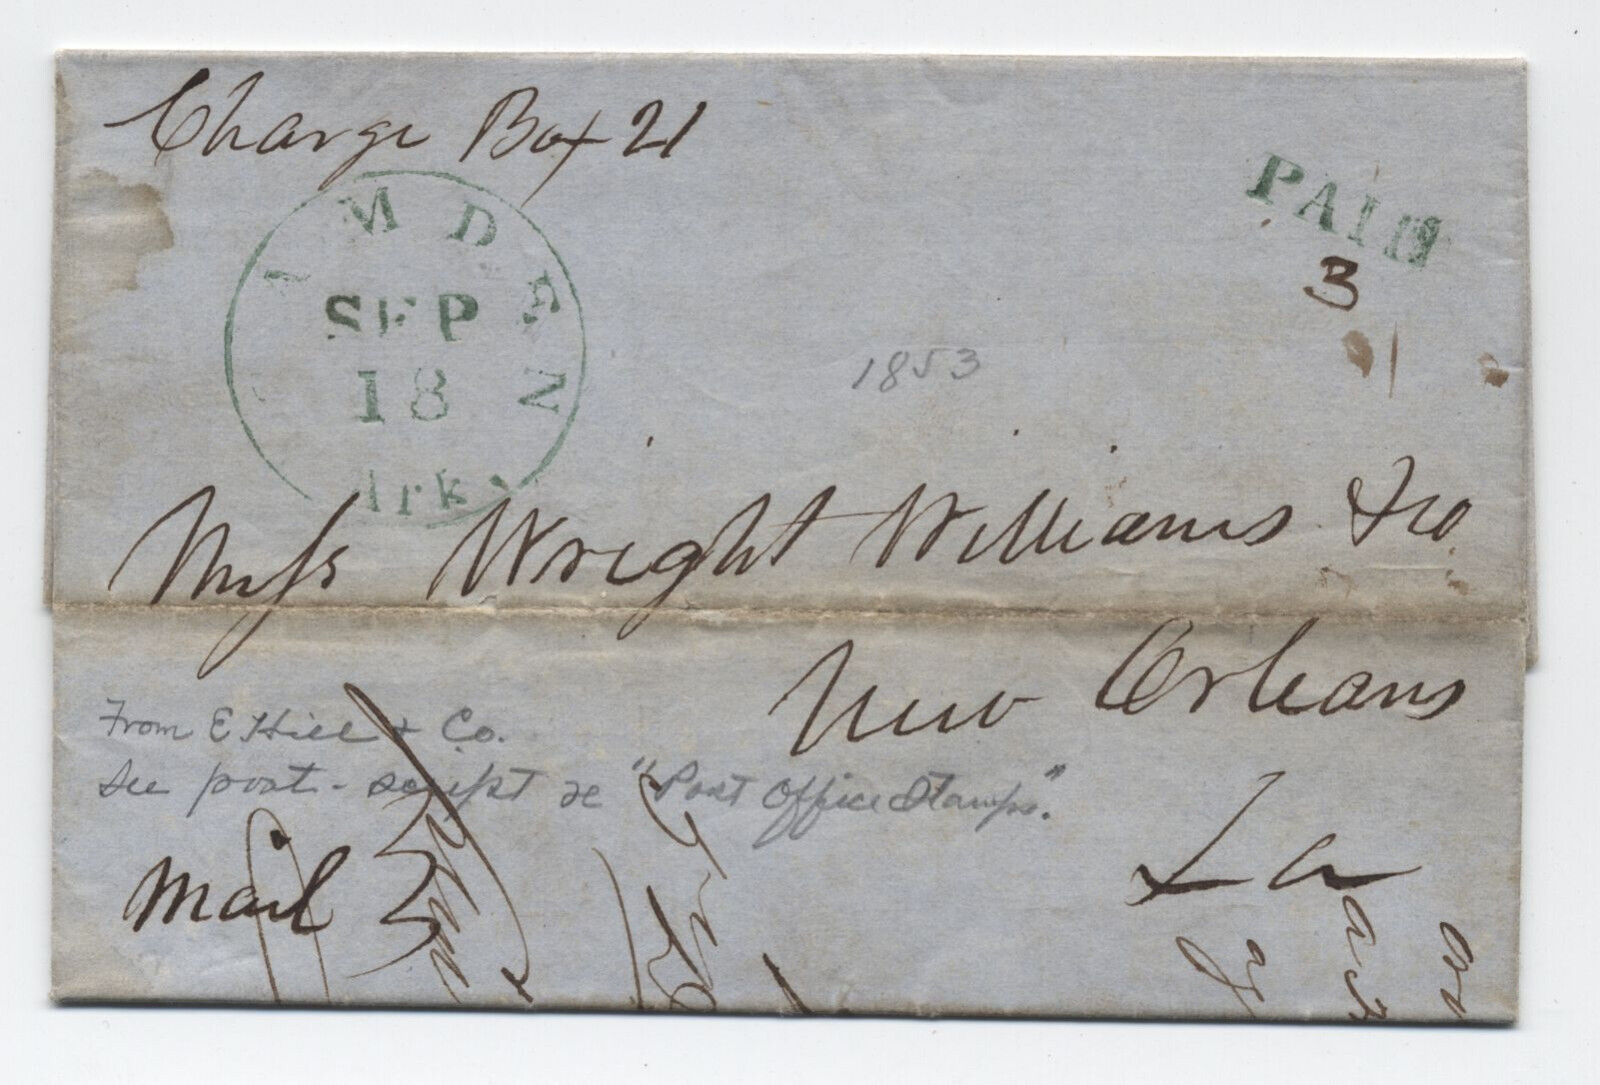 Charge Box 21
PAID
3
AMDEN
SEP
18
Ark.
1853
Messrs Wright Williams & Co
New Orleans
From E Hill & Co.
See post-script re "Post Office Stamps."
La
Mail